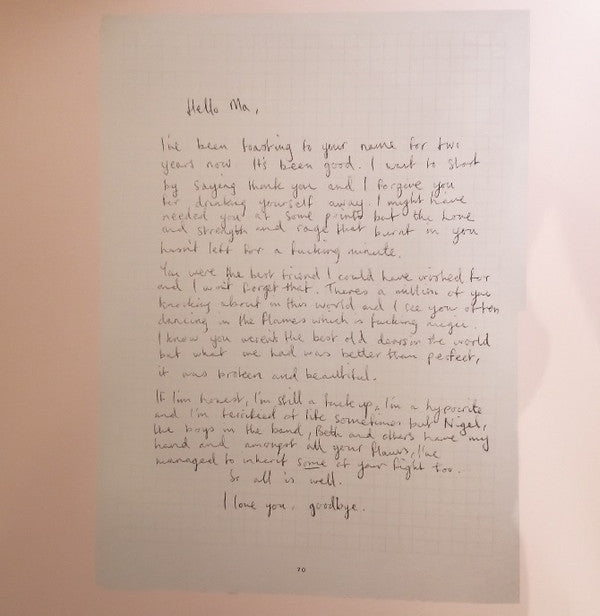 Hello Ma,
I've been toasting to your name for two
years now. It's been good. I want to start
by saying thank you and I forgive you
for drinking yourself away. I might have
needed you at some points but the love
and strength and rage that burnt in you
hasn't left for a fucking minute.
You were the best friend I could have wished for
and I won't forget that. Theres a million of you
knocking about in this world and I see you often
dancing in the flames which is fucking mega.
I know you weren't the best old dears in the world
but what we had was better than perfect,
it was broken and beautiful.
If I'm honest, I'm still a fuck up, I'm a hypocrite
and I'm terrified of life sometimes but Nigel,
the boys in the band, Beth and others have my
hand and amongst all your flaws, I've
managed to inherit some of your fight too.
So all is well.
I love you. goodbye.
70